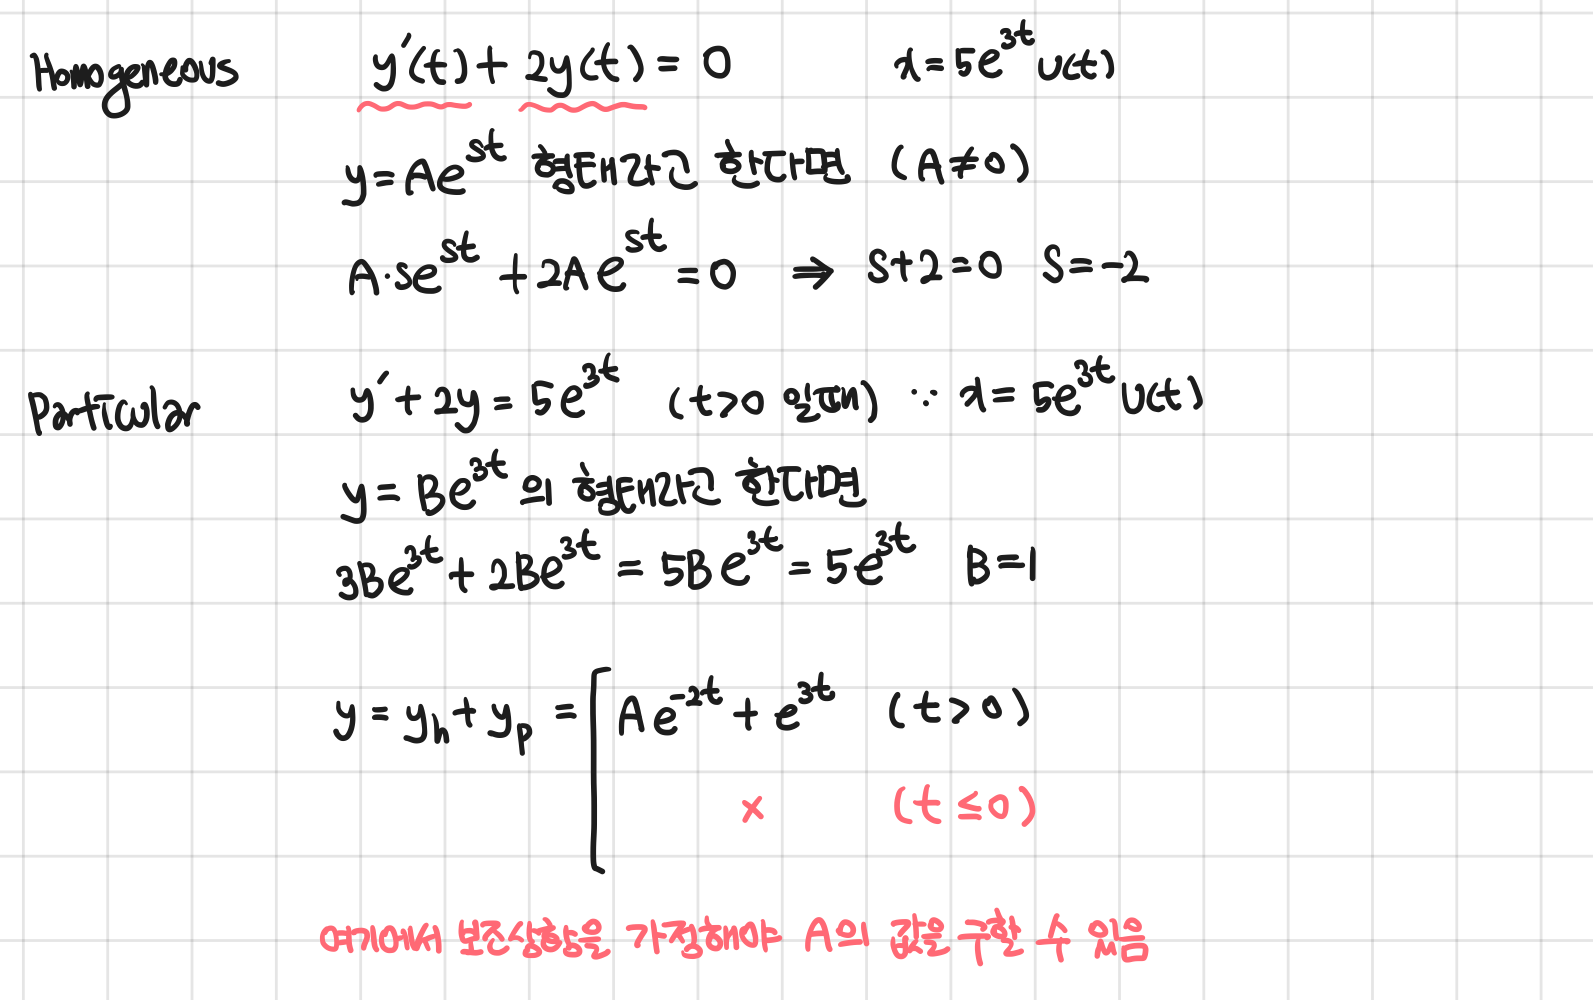 Homogeneous y'(t) + 2y(t) = 0 x = 5e^{3t} u(t)
y = Ae^{st} 형태라고 한다면 (A ≠ 0)
A·se^{st} + 2Ae^{st} = 0 ⇒ s+2=0 s=-2
Particular y' + 2y = 5e^{3t} (t>0 일때) ∵ x = 5e^{3t} u(t)
y = Be^{3t} 의 형태라고 한다면
3Be^{3t} + 2Be^{3t} = 5Be^{3t} = 5e^{3t} B=1
y = y_h + y_p = [ Ae^{-2t} + e^{3t} (t>0)
× (t ≤ 0)
여기에서 보조상황을 가정해야 A의 값을 구할 수 있음